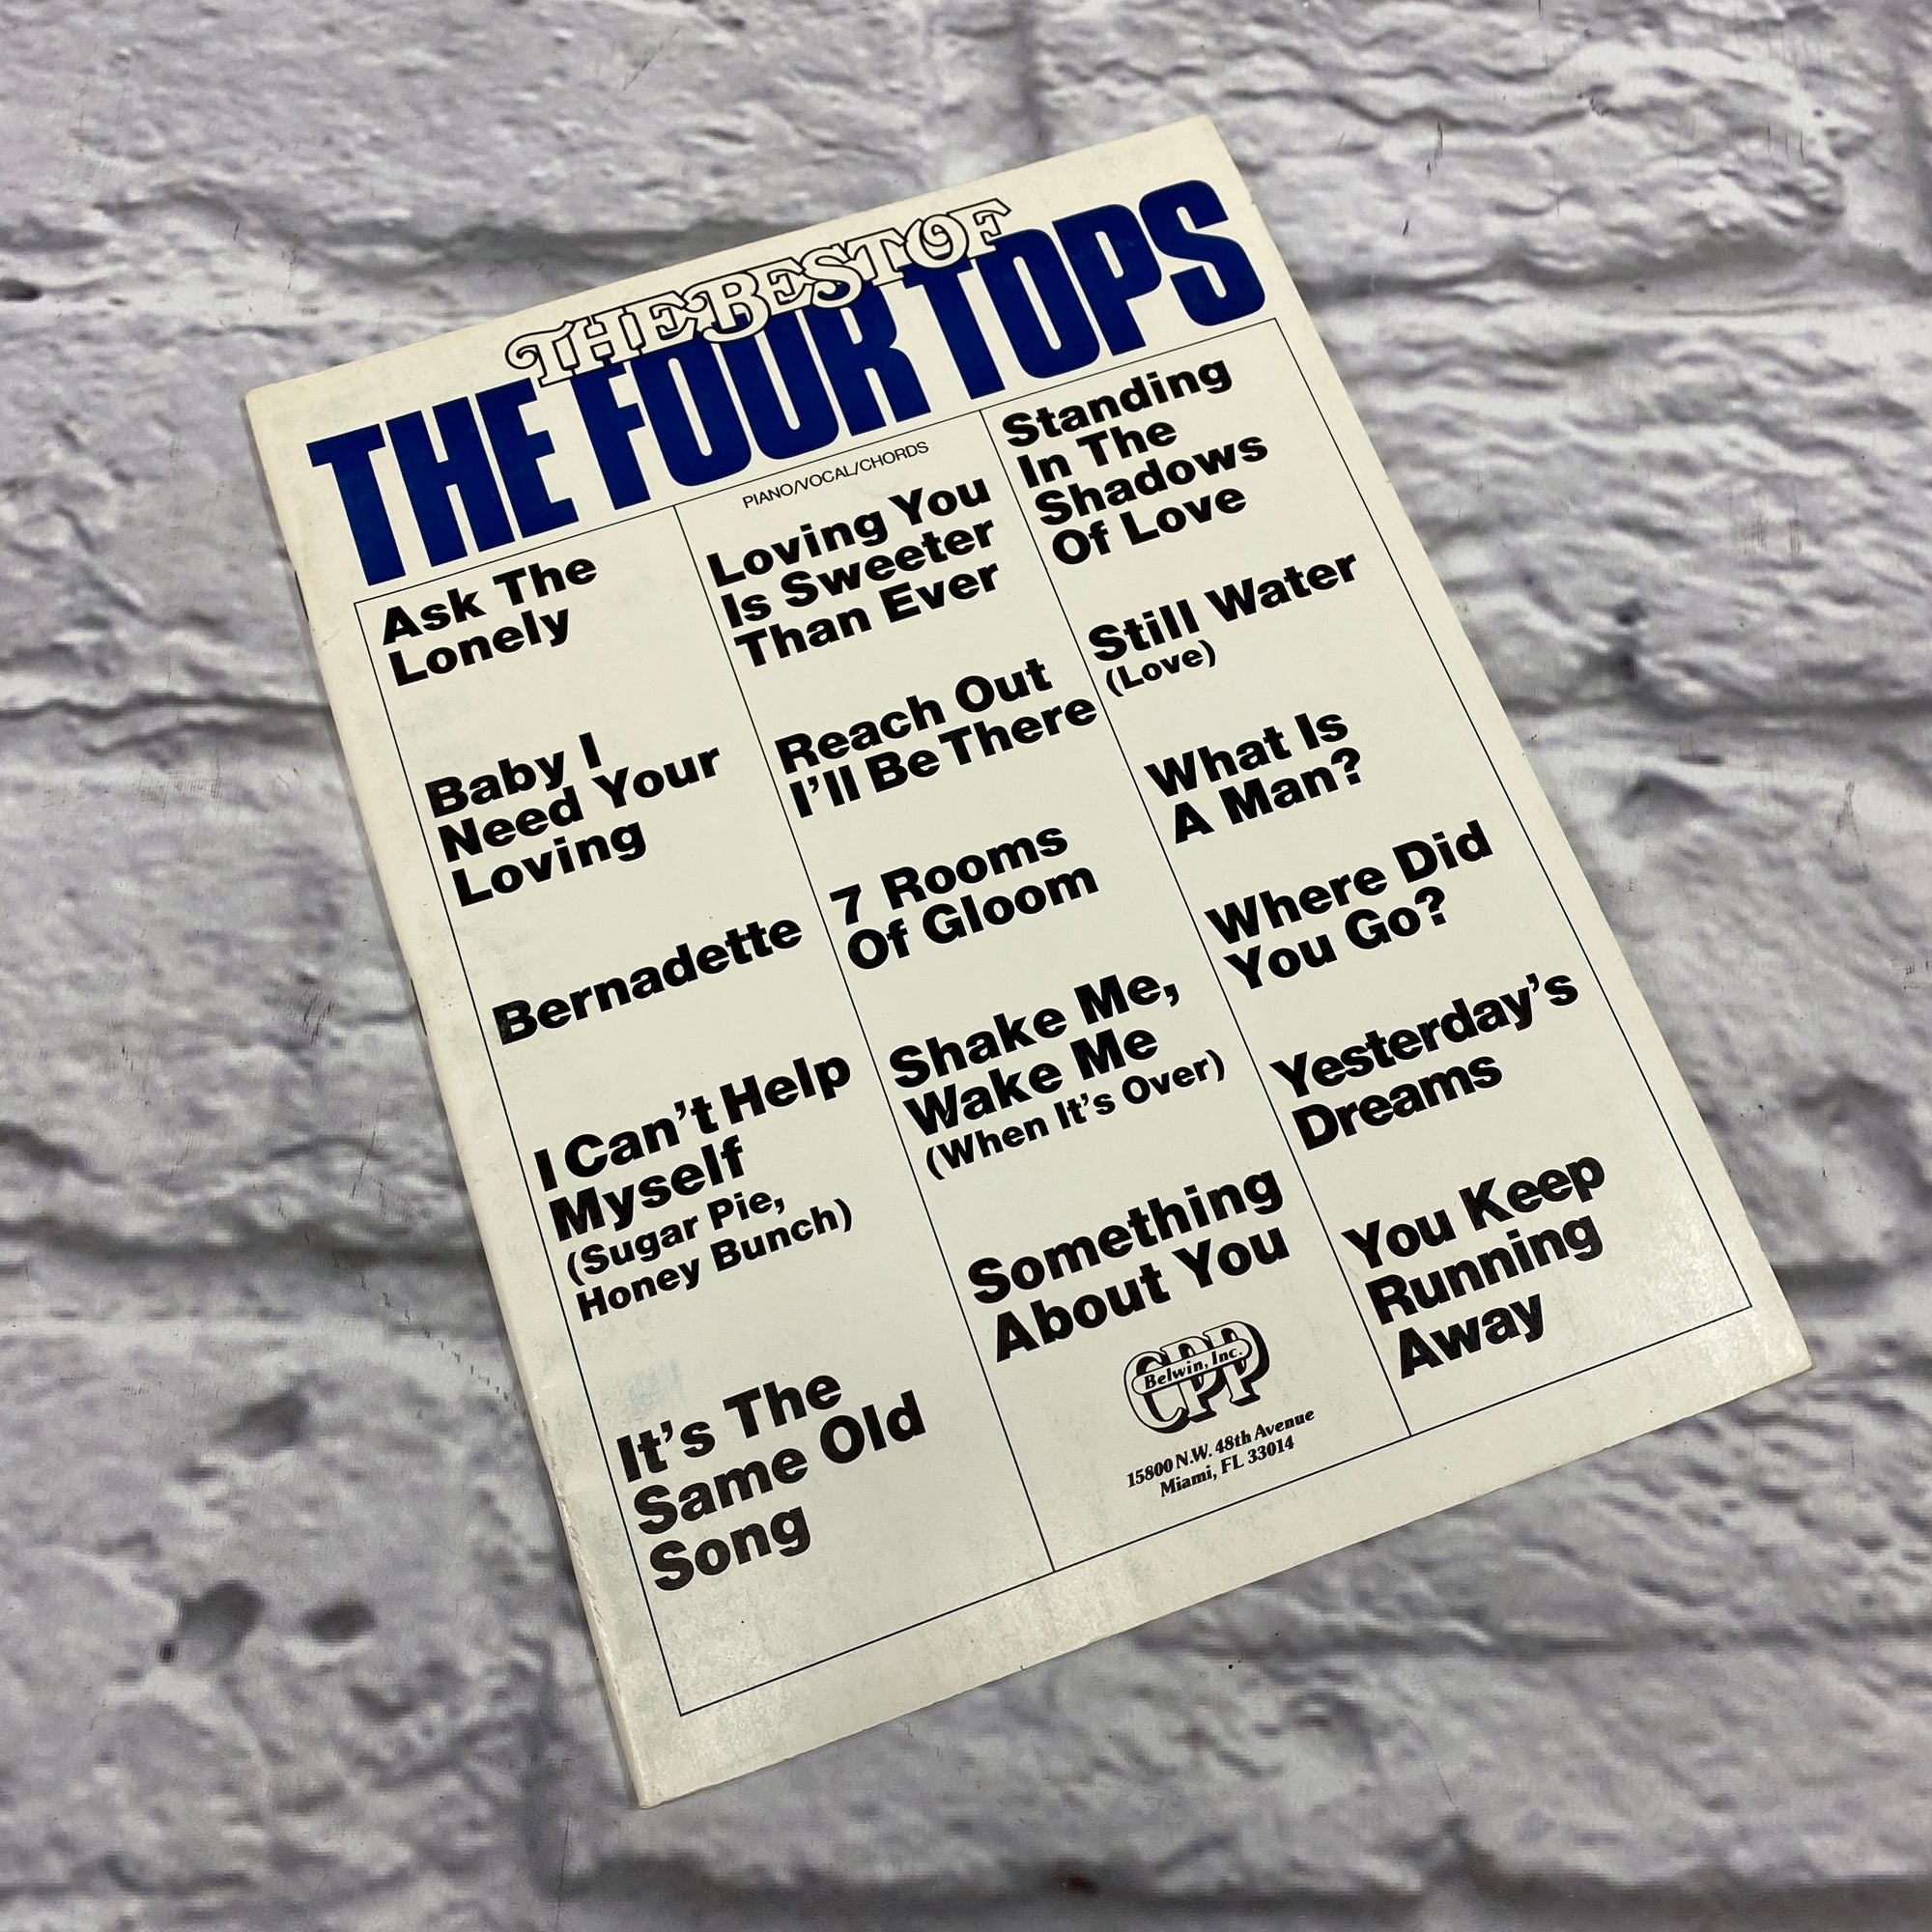 THE BEST OF
THE FOUR TOPS
PIANO/VOCAL/CHORDS
Ask The
Lonely
Baby I
Need Your
Loving
Bernadette
I Can't Help
Myself
(Sugar Pie,
Honey Bunch)
It's The
Same Old
Song
Loving You
Is Sweeter
Than Ever
Reach Out
I'll Be There
7 Rooms
Of Gloom
Shake Me,
Wake Me
(When It's Over)
Something
About You
CPP
Belwin, Inc.
15800 N.W. 48th Avenue
Miami, FL 33014
Standing
In The
Shadows
Of Love
Still Water
(Love)
What Is
A Man?
Where Did
You Go?
Yesterday's
Dreams
You Keep
Running
Away